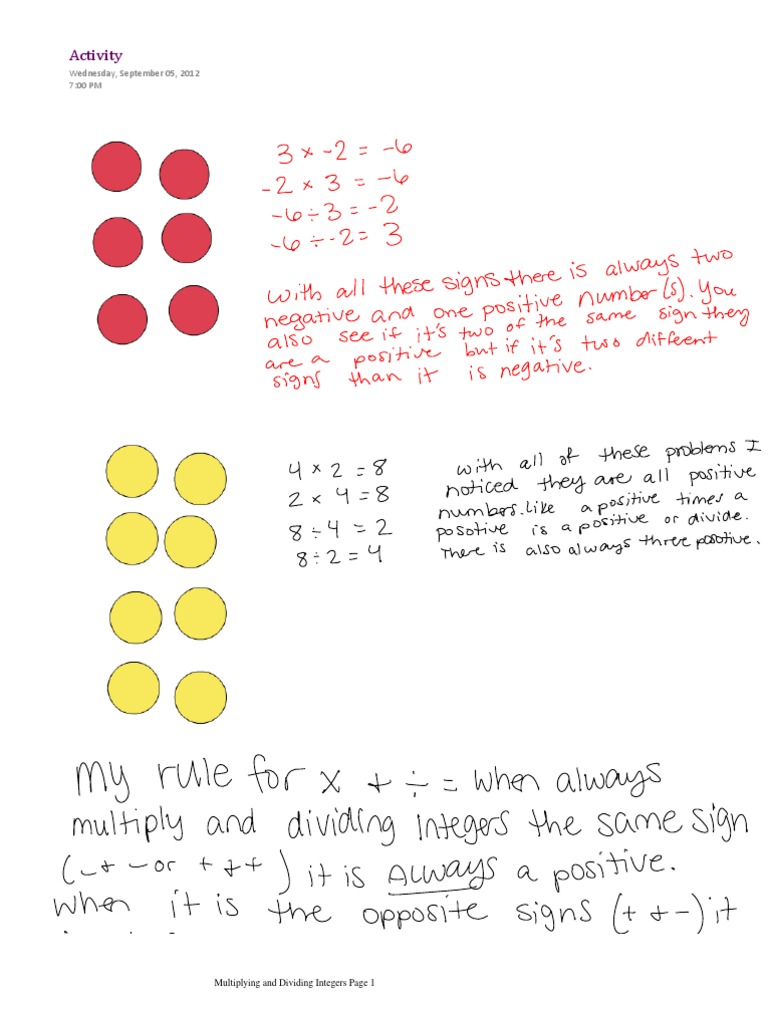 Activity
Wednesday, September 05, 2012
7:00 PM
3 × -2 = -6
-2 × 3 = -6
-6 ÷ 3 = -2
-6 ÷ -2 = 3
with all these signs there is always two
negative and one positive number(s). You
also see if it's two of the same sign they
are a positive but if it's two different
signs than it is negative.
4 × 2 = 8
2 × 4 = 8
8 ÷ 4 = 2
8 ÷ 2 = 4
with all of these problems I
noticed they are all positive
numbers. Like a positive times a
posotive is a positive or divide.
There is also always three positive.
My rule for × + ÷ = when always
multiply and dividing integers the same sign
(- + - or + + +) it is ALWAYS a positive.
When it is the opposite signs (+ + -) it
Multiplying and Dividing Integers Page 1